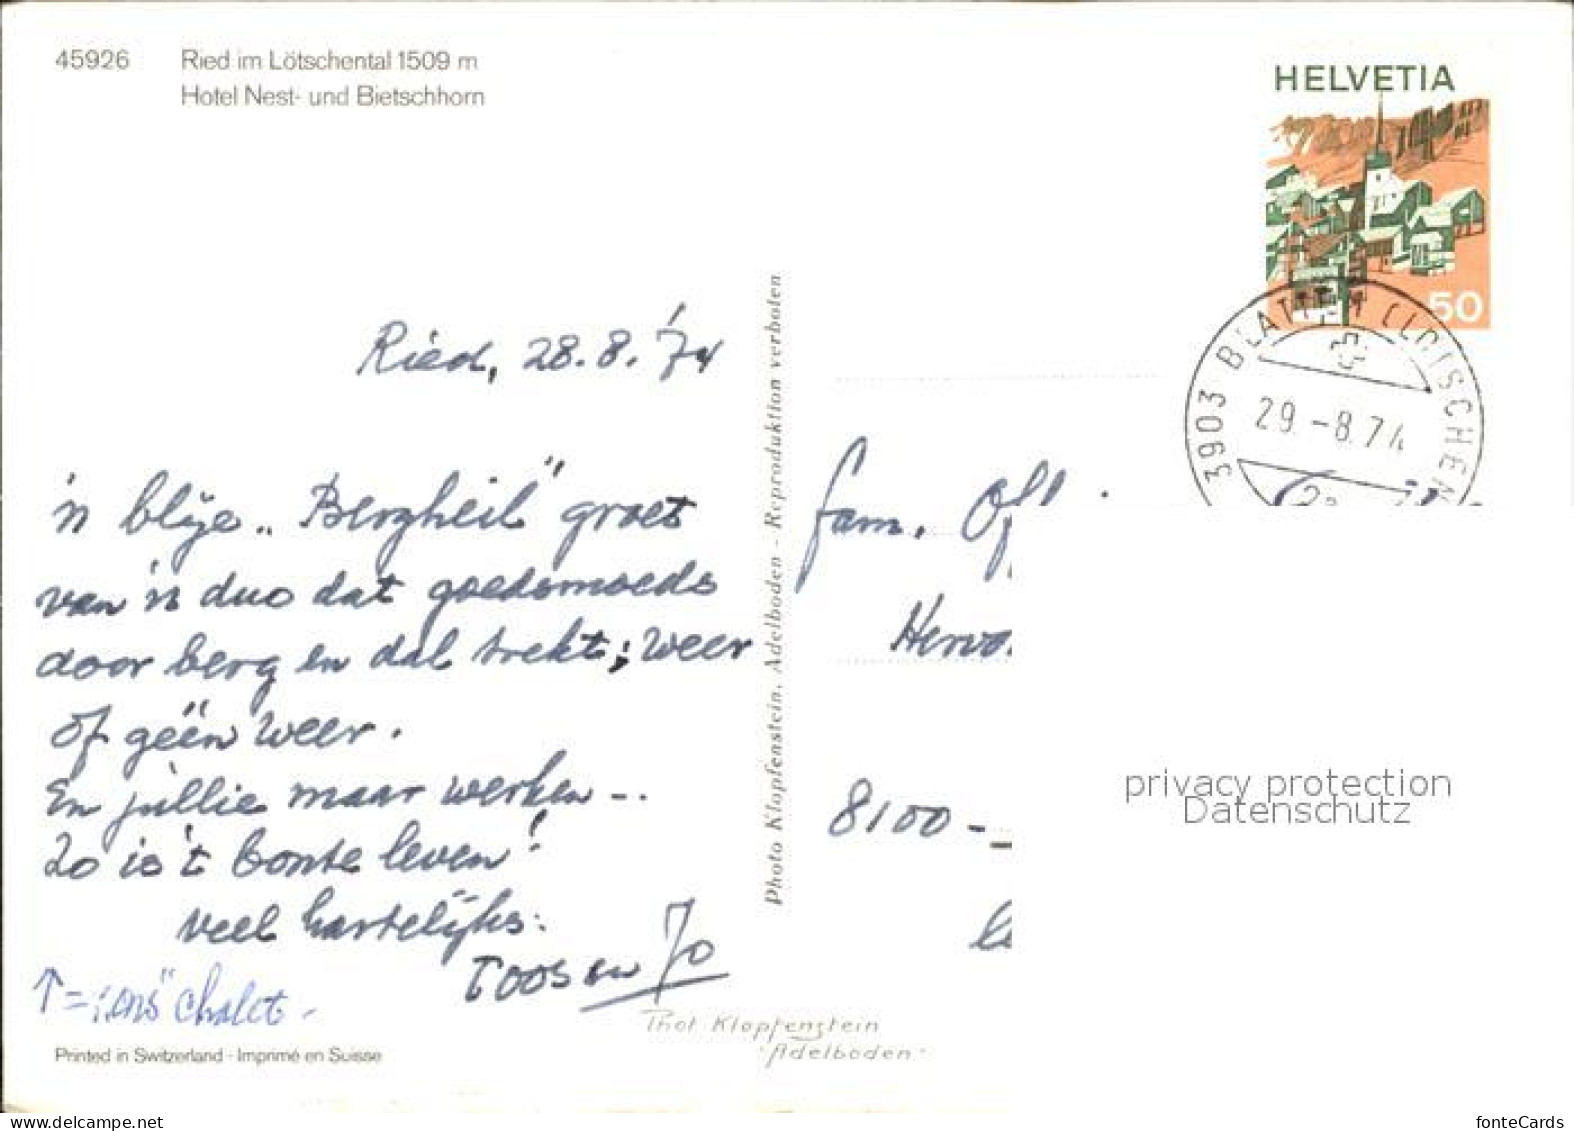 45926 Ried im Lötschental 1509 m
Hotel Nest- und Bietschhorn
HELVETIA
50
3903 BLATTEN (LÖTSCHEN
29.-8.74
Ried, 28.8.'74
'n blije „Bergheil" groet
van 'n duo dat goedsmoeds
door berg en dal trekt; weer
of géén weer.
En jullie maar werken --
Zo is 't bonte leven!
veel hartelijks:
Toos en Jo
↑ = „ons" chalet -
Printed in Switzerland - Imprimé en Suisse
Photo Klopfenstein, Adelboden - Reproduktion verboten
Phot Klopfenstein
Adelboden
fam.
8100 -
privacy protection
Datenschutz
fonteCards